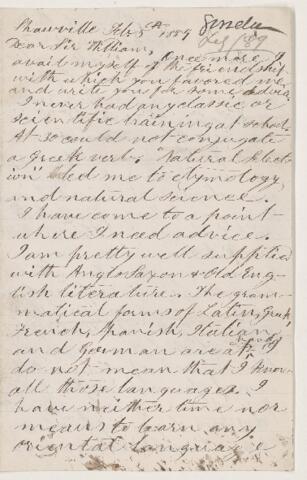 Feb 5th 1889
Dear Sir William,
Once more I
avail myself of the friendship
with which you favored me
and write you for some advice
I never had any classic or
scientific training at school.
At 30 could not conjugate
a Greek verb. "Natural Selec-
tion" led me to etymology
and natural science.
I have come to a point
where I need advice.
I am pretty well supplied
with Anglo Saxon & Old Eng-
lish literature. The gram-
matical forms of Latin, Greek
French, Spanish, Italian
and German are at
do not mean that I know
all those languages. I
have neither time nor
means to learn any
oriental language